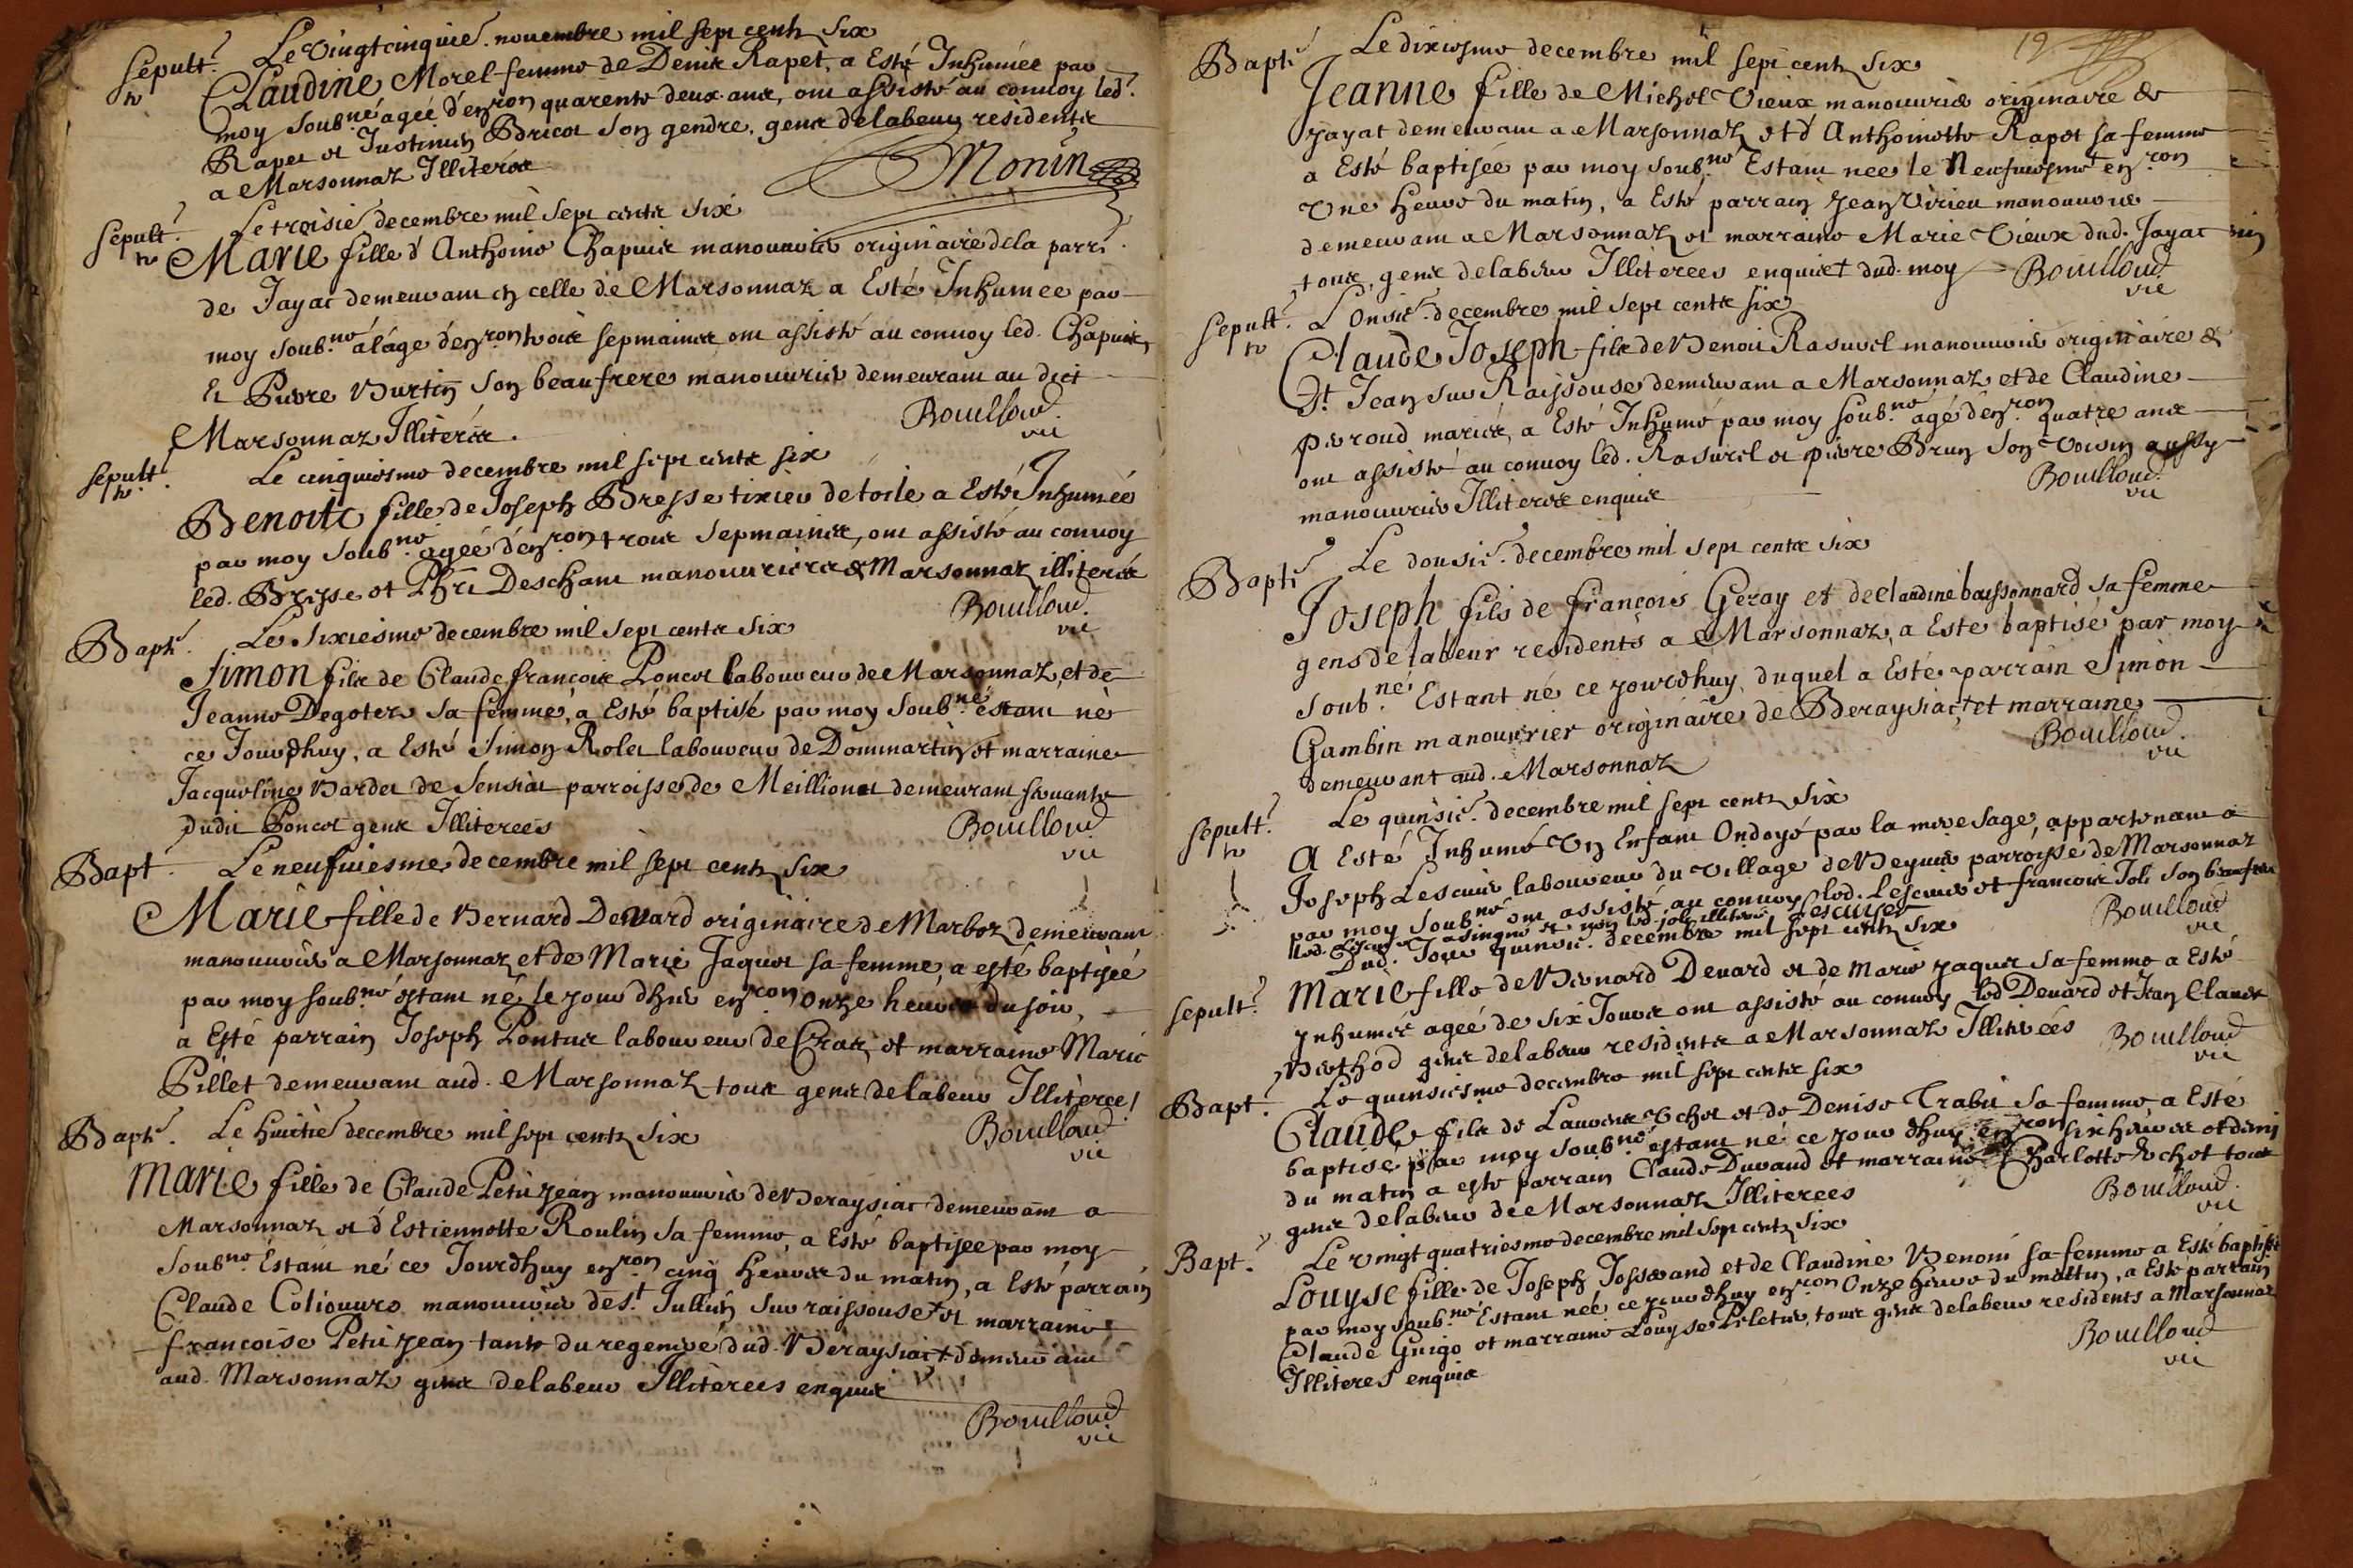 Sepult.re Le Vingtcinquie. novembre mil sept cents Six
Claudine Morel femme de Denis Rapet, a Esté Inhumée par
moy soub.né agéé d'en.ron quarente deux ans, ont assisté au convoy led.
Rapet et Justinien Bricot son gendre, gens delabeur residents
a Marsonnaz Illiterés
Monin
Sepult.re Le troisie. decembre mil Sept cents Six
Marie fille d'Anthoine Chapuis manouvrier originaire dela parr.
de Jayat demeurant en celle de Marsonnaz a Esté Inhumee par
moy soub.né a l'age d'en.ron trois sepmaines ont assisté au convoy led. Chapuis,
Et Pierre Burtin son beaufrere manouvrier demeurant au dict
Marsonnaz Illiterés.
Bouilloud
vic
Sepult.re Le cinquiesme decembre mil sept cents six
Benoite fille de Joseph Bresse tixier de toile a Esté Inhumeé
par moy soub.né ageé d'en.ron trois sepmaines, ont assisté au convoy
led. Bresse et Phi. Deschant manouvriers de Marsonnaz illiterés
Bouilloud
vic
Bapt. Le Sixiesme decembre mil sept cents six
Simon fils de Claude françois Poncet laboureur de Marsonnaz, et de
Jeanne Degoter sa femme, a Esté baptisé par moy soub.né estant né
ce Jourdhuy, a Esté Simon Rolet laboureur de Dommartin et marraine
Jacqueline Bardet de Sensiat parroisse de Meillionat demeurant servante
dudit Poncet gens Illiterees
Bouilloud
vic
Bapt. Le neufviesme decembre mil sept cents six
Marie fille de Bernard Devard originaire de Marboz demeurant
manouvrier a Marsonnaz et de Marie Jaquet sa femme a esté baptiseé
par moy soub.né estant né le jour dhier en.ron onze heures du soir,
a Esté parrain Joseph Pontus laboureur de Cras, et marraine Marie
Pillet demeurant aud. Marsonnaz tous gens delabeur Illiteree!
Bouilloud
vic
Bapt. Le huitie. decembre mil sept cents Six
Marie fille de Claude Petit Jean manouvrier de Beraysiat demeurant a
Marsonnaz et d'Estiennette Roulin sa femme, a Esté baptisee par moy
soub.né Estant né ce Jourdhuy en.ron cinq heures du matin, a Esté parrain
Claude Coliouvro manouvrier de s.t Jullien sur raissouse et marraine
francoise Petit jean tante du regendre dud. Beraysiat demeurant
aud. Marsonnaz gens delabeur Illiterees enquis
Bouilloud
vic
19
Bapt. Le dixiesme decembre mil sept cents Six
Jeanne fille de Michel Vieux manouvrier originaire de
Jayat demeurant a Marsonnaz et d'Anthoinette Rapet sa femme
a Esté baptisée par moy soub.né Estant nee le Neufviesme en.ron
Une heure du matin, a Esté parrain Jean Virieu manouvrier
demeurant a Marsonnaz et marraine Marie Vieux dud. Jayat
tous, gens delabeur Illiterees enquis dud. moy Bouilloud
vic
Sepult.re L'Onsie. decembre mil sept cents six
Claude Joseph fils de Benoit Rasurel manouvrier originaire de
St. Jean sur Raissouse demeurant a Marsonnaz et de Claudine
Peroud mariés, a Esté Inhumé par moy soub.né agé d'en.ron quatre ans
ont assisté au convoy led. Rasurel et pierre Brun son voisin aussy
manouvrier Illiterés enquis
Bouilloud
vic
Bapt. Le dousie. decembre mil sept cents six
Joseph fils de françois Geray et de claudine baussonnard sa femme
gens de labeur residents a Marsonnaz, a Esté baptisé par moy
soub.né Estant né ce jourdhuy, duquel a Esté parrain Simon
Gambin manouvrier originaire de Beraysiat, et marraine
demeurant aud. Marsonnaz
Bouilloud
vic
Sepult.re Le quinsie. decembre mil sept cents Six
A Esté Inhumé Un Enfant Ondoyé par la mere sage, appartenant a
Joseph Lescuier laboureur du village de Beyvier parroysse de Marsonnaz
par moy soub.né ont assisté au convoy led. Lescuier et francois Joli son beaufrere
led. Lescuier a signé et non led. joli illiteré Lescuier
Bouilloud
vic
Dud. Jour quinsie. decembre mil sept cents Six
Sepult. Marie fille de Bernard Devard et de Marie jaquet sa femme a Esté
Inhumée ageé de six Jours ont assisté au convoy led Devard et Jean Claude
Berthod gens delabeur residents a Marsonnaz Illiterées
Bouilloud
vic
Bapt. Le quinsiesme decembre mil sept cents six
Claude fils de Laurent Ochet et de Denise Trabit sa femme a Esté
baptisé par moy soub.né estant né ce jour dhuy en.ron six heures et demi
du matin a esté parrain Claude Durand et marraine Charlotte Ochet tous
gens delabeur de Marsonnaz Illiterees
Bouilloud
vic
Bapt. Le vingt quatriesme decembre mil sept cents six
Louyse fille de Joseph Josserand et de Claudine Benoni sa femme a Esté baptisée
par moy soub.né Estant neé ce jourdhuy en.ron Onze heure du mattin, a Esté parrain
Claude Guigo et marraine Louyse Piletier, tous gens delabeur residents a Marsonnaz
Illiteres enquis
Bouilloud
vic